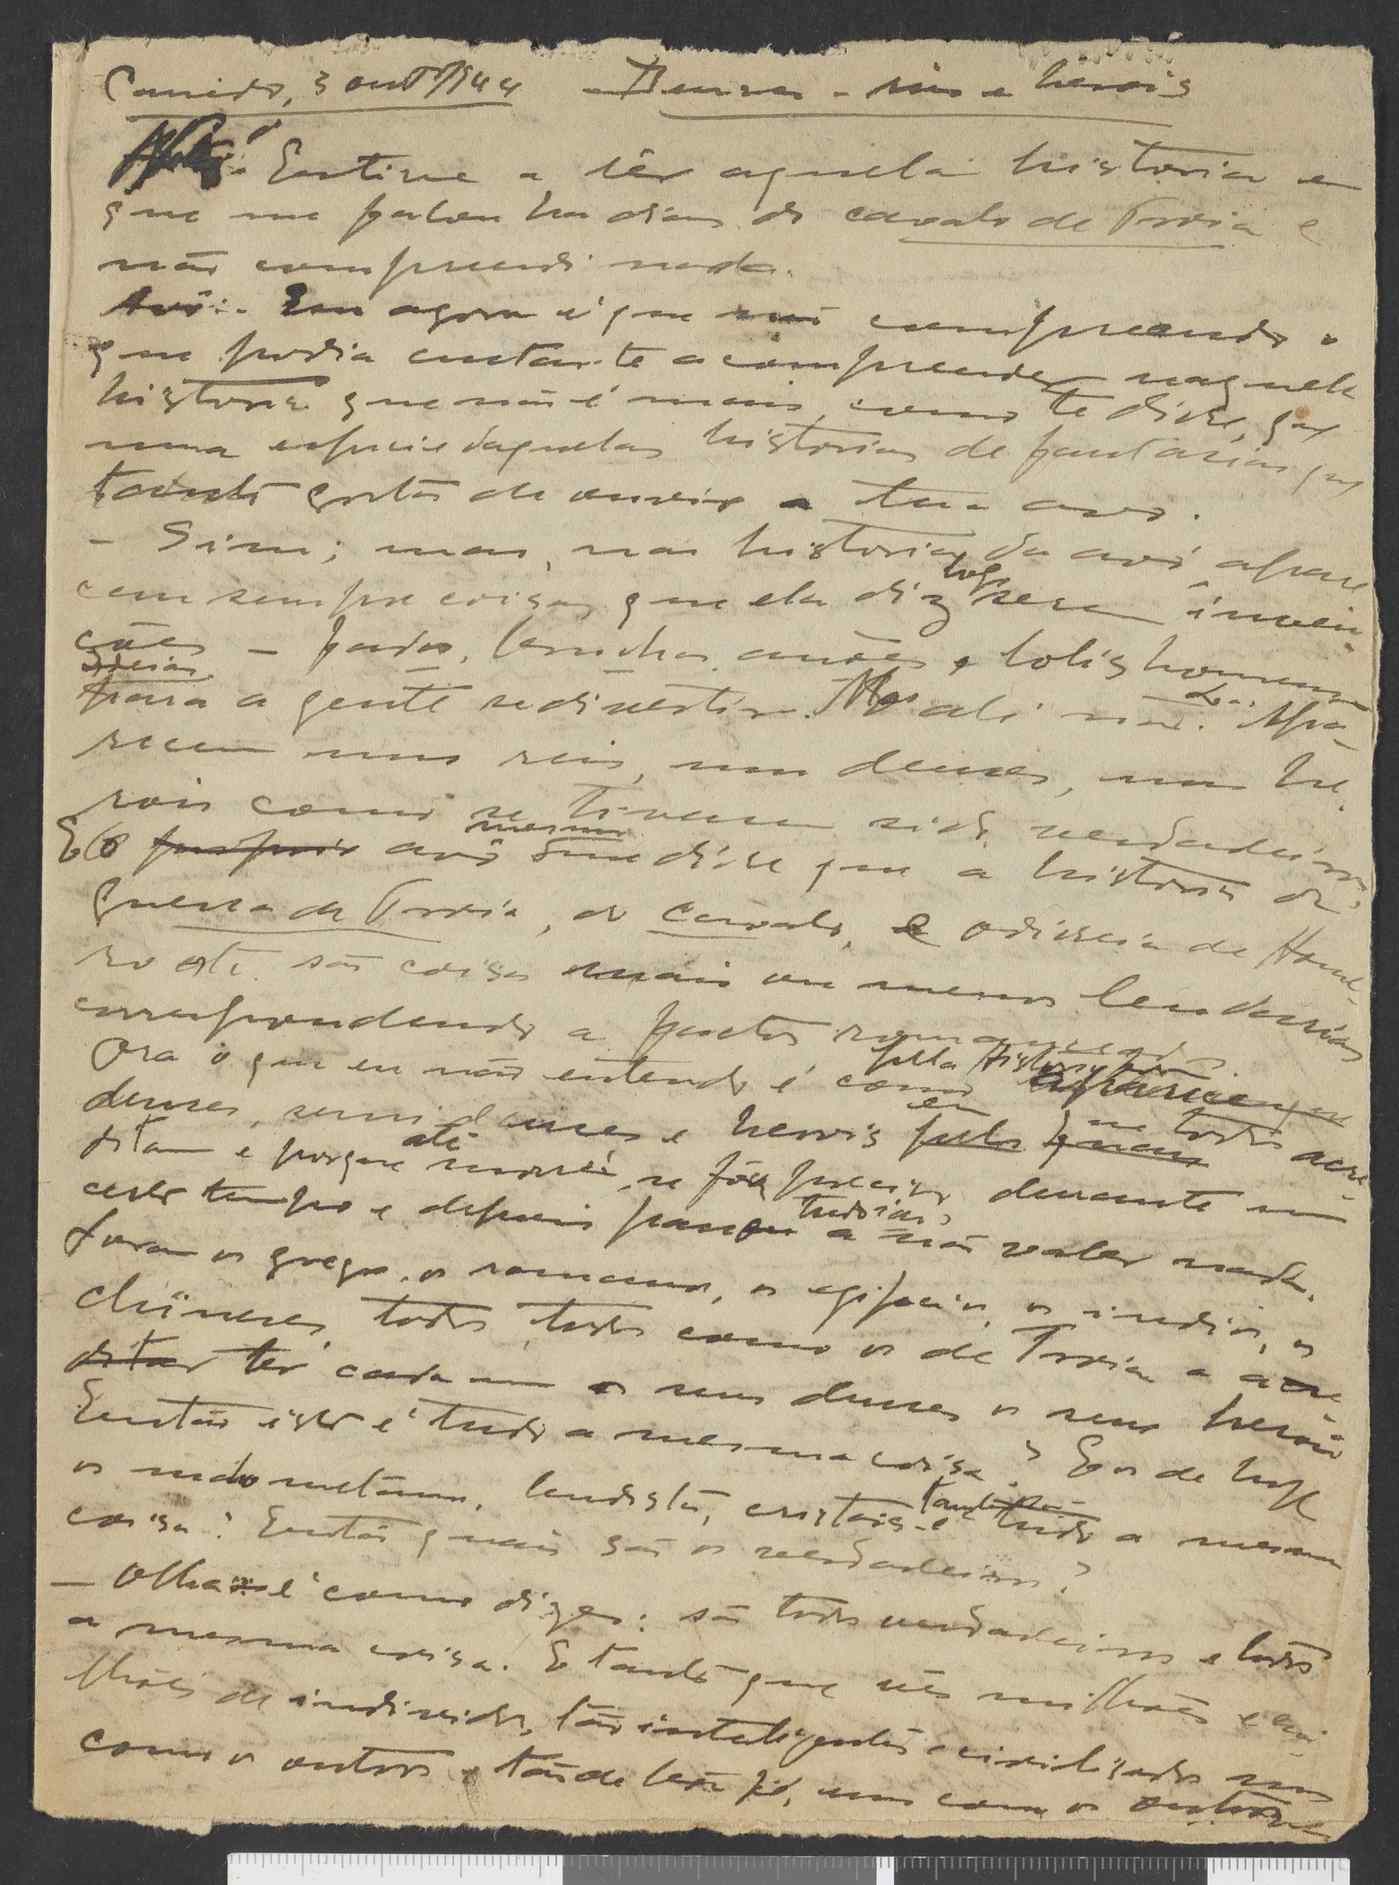 Caneido, 3 out 1944 Deuses - reis e herois
Estive a lêr aquela historia em
que me falou ha dias do cavalo de Troia e
não compreendi nada.
Avô:- Eu agora é que não compreendo o
que podia custar-te a compreender naquela
historia que não é mais, como te disse, que
uma especie daquelas historias de fantasias que
tanto gostas de ouvir a tua avó.
- Sim; mas, nas historias da avó apare
cem sempre coisas que ela diz logo serem inven-
ções - fadas, bruxas, anões e lobishomens
ideias para a gente se divertir. Mas ali não. Apa-
recem uns reis, uns deuses, uns he-
rois como se tivessem sido verdadeiros,
E o proprio avô mesmo disse que a historia da
Guerra de Troia, do cavalo, e odisseia de Home-
ro etc. são coisas mais ou menos lendarias
correspondendo a factos romanceados
Ora o que eu não entendo é como pela Historia aparecem
deuses, semideuses e herois em que todos acre-
ditam e porque até morrer, se fôr preciso durante um
certo tempo e depois passam a não valer nada.
Foram os gregos, os romanos, os egipcios, os indios, os
chineses, todos, todos como os de Troia a acre
ditar ter cada um os seus deuses os seus herois
Então isto é tudo a mesma coisa? E os de hoje
os mahometanos, budistas, cristãos - é tudo a mesma
coisa? Então quais são os verdadeiros?
- Olha é como dizes: são todos verdadeiros e todos
a mesma coisa. E tanto que uns milhões e mi-
lhões de individuos, tão inteligentes e civilizados uns
como os outros e tão de boa fé, uns como os outros